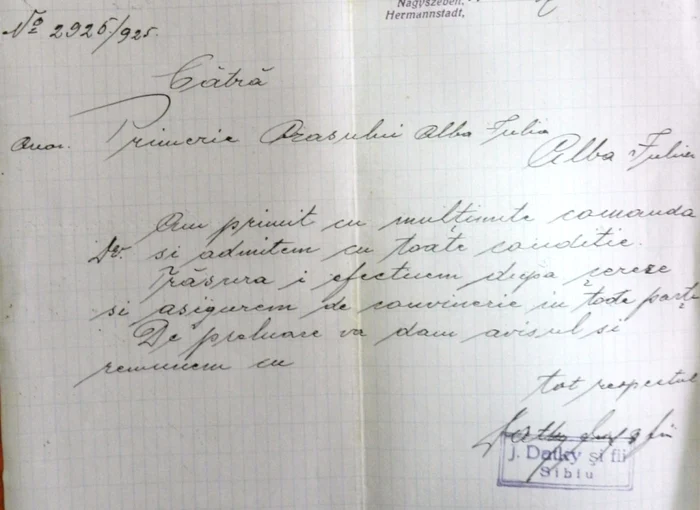 Nagyszeben,
Hermannstadt,
No 2925/925.
Cătră
Onor. Primerie Orasului Alba Iulia
Alba Iulia
Am primit cu mulțimite comanda
Dv. si admitem cu toate conditie.
Trăsura i efectuem dupa cereze
si asigurem de convinerie in tote parț
De preluare va dam avisul si
remunem cu
tot respectul
J. Datky și fii
Sibiu